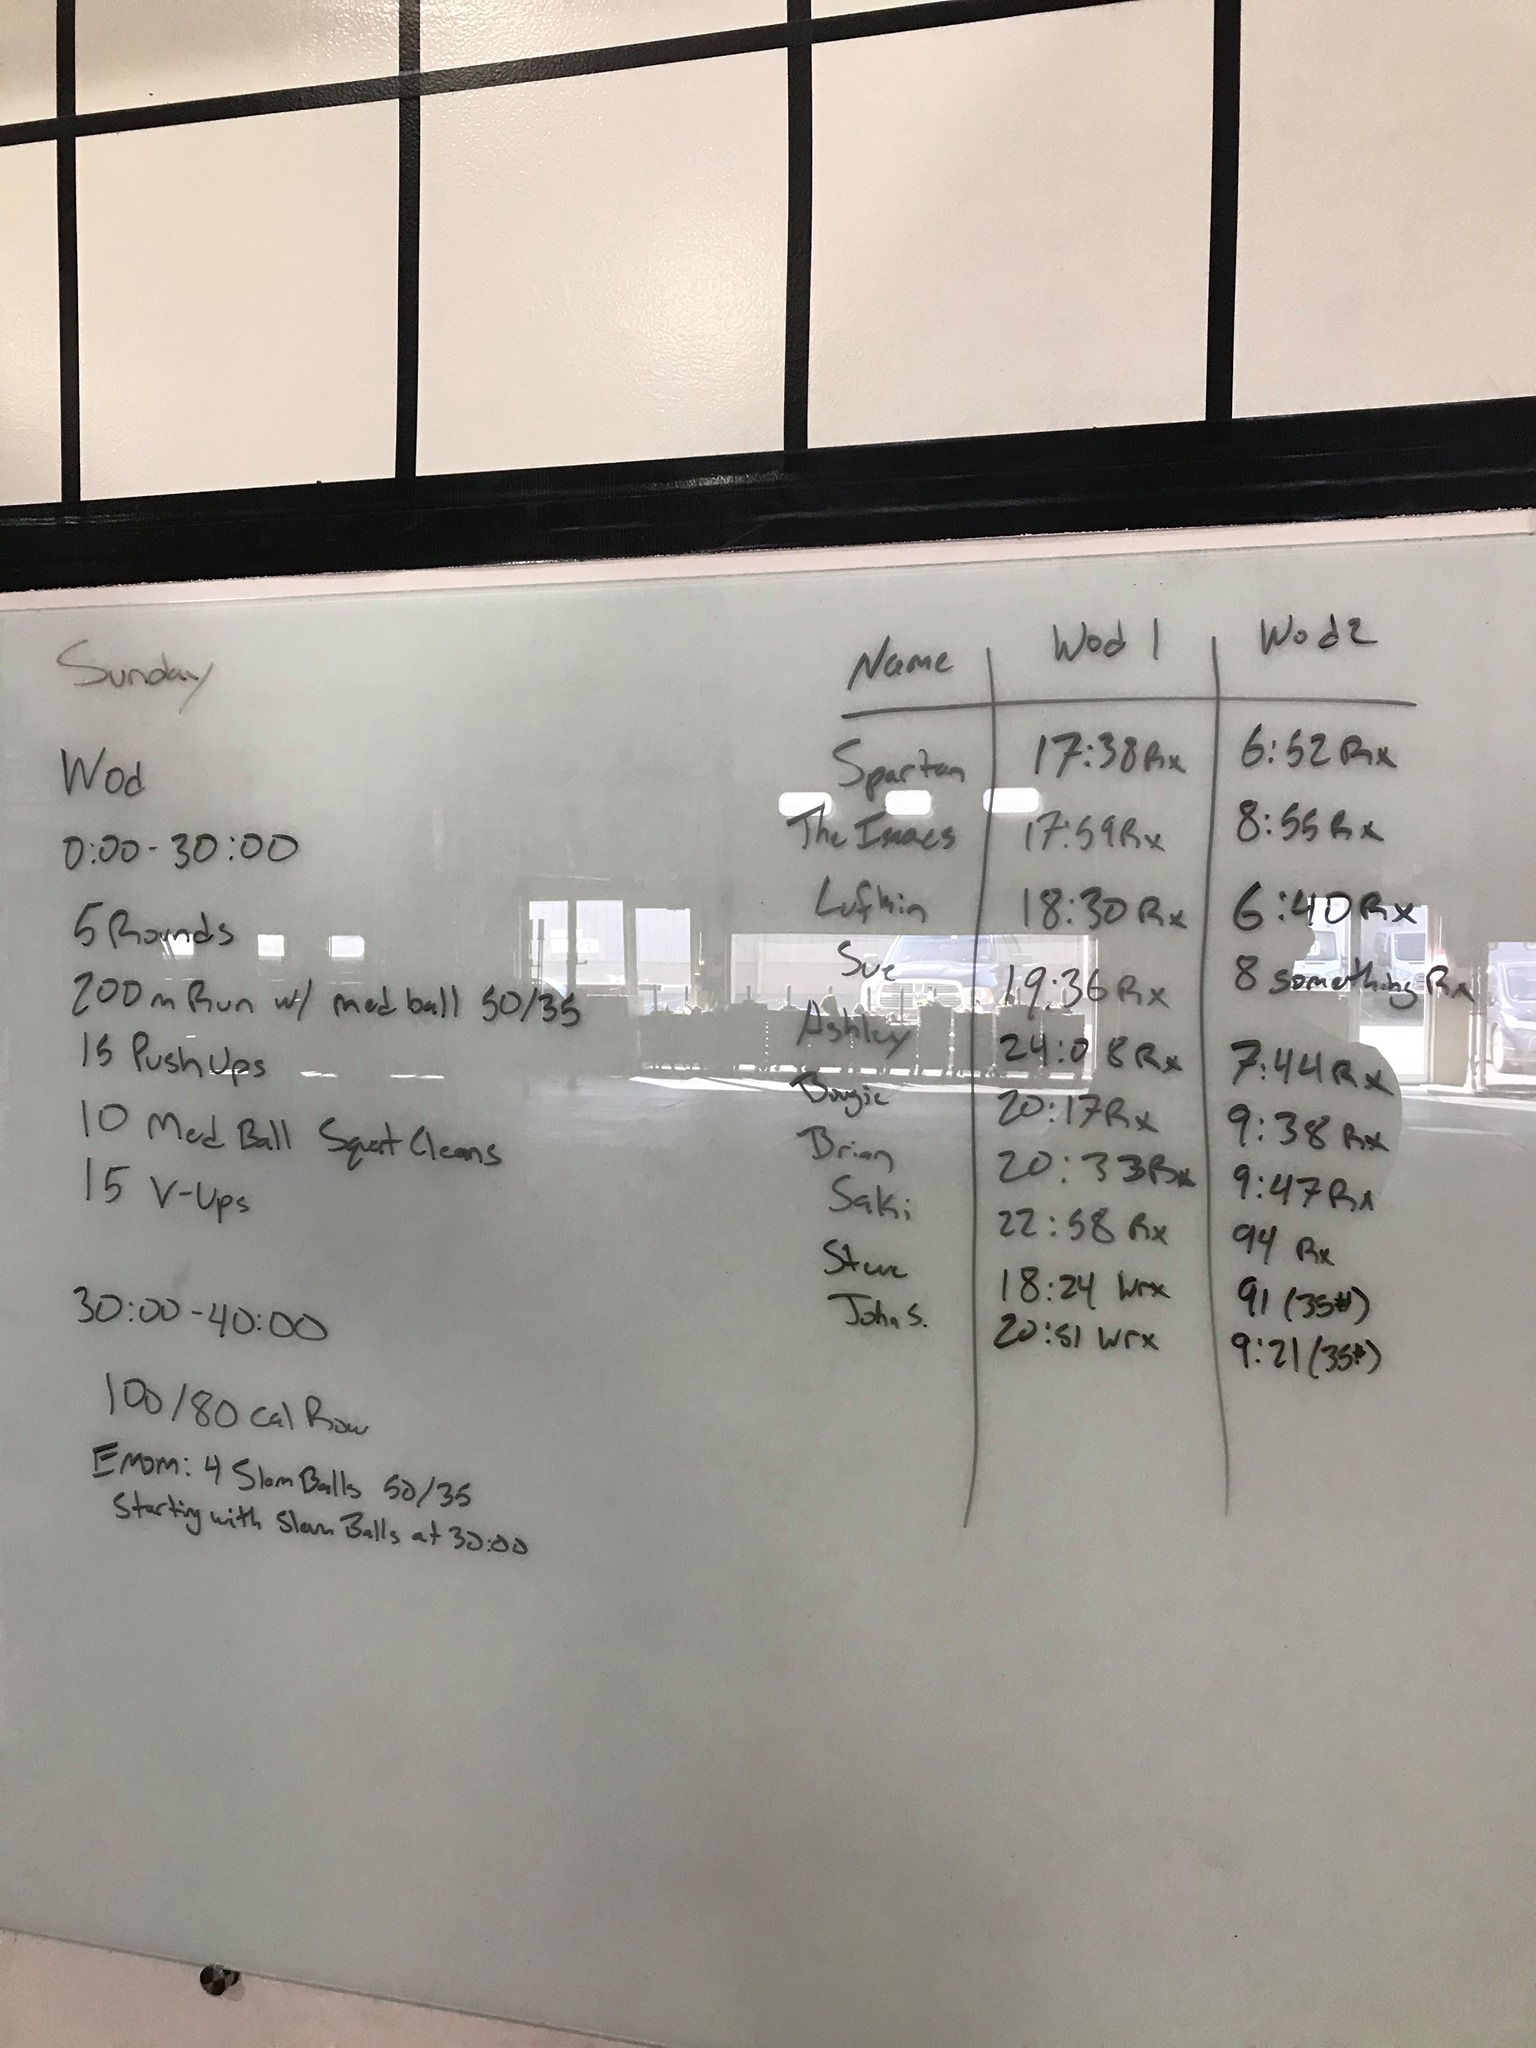 Sunday
Wod
0:00-30:00
5 Rounds
200m Run w/ med ball 50/35
15 Push Ups
10 Med Ball Squat Cleans
15 V-Ups
30:00-40:00
100/80 cal Row
Emom: 4 Slam Balls 50/35
Starting with Slam Balls at 30:00
Name Wod 1 Wod 2
Spartan 17:38 Rx 6:52 Rx
The Isaacs 17:59 Rx 8:55 Rx
Lufkin 18:30 Rx 6:40 Rx
Sue 19:36 Rx 8 something Rx
Ashley 24:08 Rx 7:44 Rx
Bougie 20:17 Rx 9:38 Rx
Brian 20:33 Rx 9:47 Rx
Saki 22:58 Rx 94 Rx
Steve 18:24 Wrx 91 (35#)
John S. 20:51 Wrx 9:21 (35#)